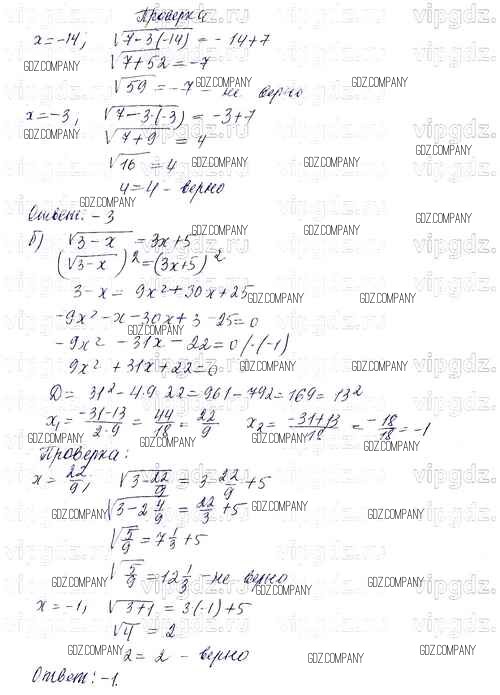 Проверка
x=-14; √(7-3(-14)) = -14+7
√(7+52) = -7
√59 = -7 - не верно
x=-3, √(7-3·(-3)) = -3+7
√(7+9) = 4
√16 = 4
4=4 - верно
Ответ: -3
б) √(3-x) = 3x+5
(√(3-x))² = (3x+5)²
3-x = 9x²+30x+25
-9x²-x-30x+3-25=0
-9x²-31x-22=0 |·(-1)
9x²+31x+22=0
D = 31²-4·9·22=961-792=169=13²
x₁ = (-31-13)/(2·9) = 44/18 = 22/9 x₂ = (-31+13)/18 = -18/18 = -1
Проверка:
x = 22/9, √(3-22/9) = 3·22/9+5
√(3-2 4/9) = 22/3+5
√(5/9) = 7 1/3+5
√(5/9) = 12 1/3 - не верно
x=-1, √(3+1) = 3(-1)+5
√4 = 2
2=2 - верно
Ответ: -1.
vipgdz.ru
GDZ.COMPANY